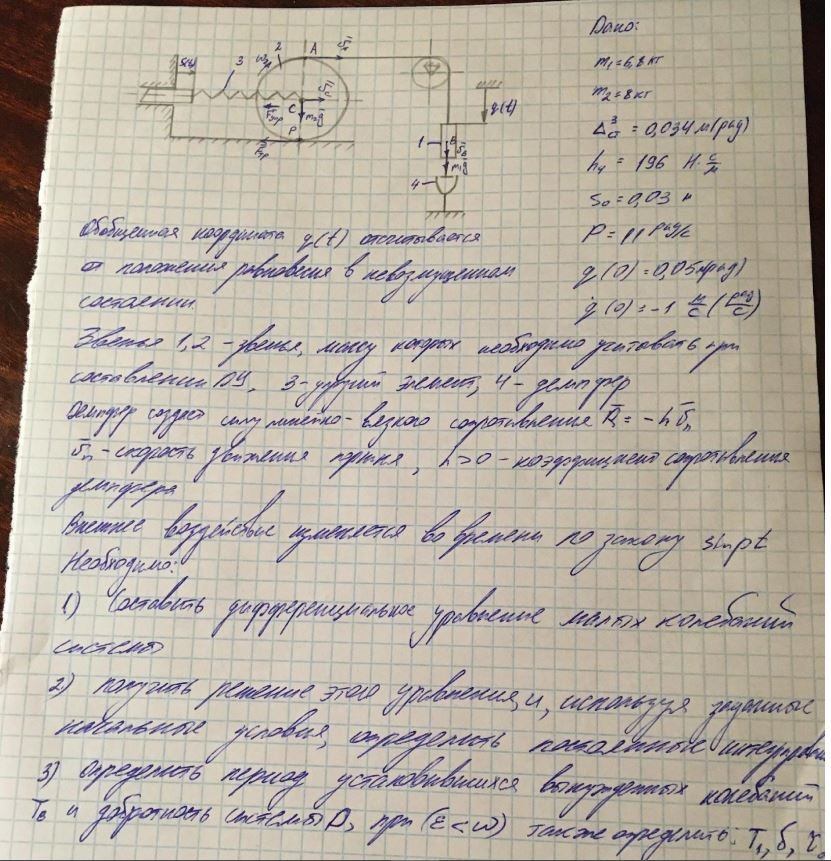 Дано:
m₁ = 6,8 кг
m₂ = 8 кг
Δ³ст = 0,034 м(рад)
h₄ = 196 Н·с/м
s₀ = 0,03 м
P = 11 рад/с
q(0) = 0,05м(рад)
q̇(0) = -1 м/с (рад/с)
S(t)
3
2
A
C
P
Fупр
m₂g
q(t)
1
B
4
Обобщенная координата q(t) отсчитывается
от положения равновесия в невозмущенном
состоянии.
Звенья 1,2 - звенья, массу которых необходимо учитывать при
составлении ДУ, 3-упругий элемент, 4 - демпфер
Демпфер создает силу линейно-вязкого сопротивления R̄ = -hῡп
ῡп - скорость движения поршня, h>0 - коэффициент сопротивления
демпфера
Внешнее воздействие изменяется во времени по закону sin pt
Необходимо:
1) Составить дифференциальное уравнение малых колебаний
системы
2) получить решение этого уравнения, и, используя заданные
начальные условия, определить постоянные
3) определить период установившихся вынужденных колебаний
Tв и добротность системы D, при (ε<ω) также определить: T₁, δ,